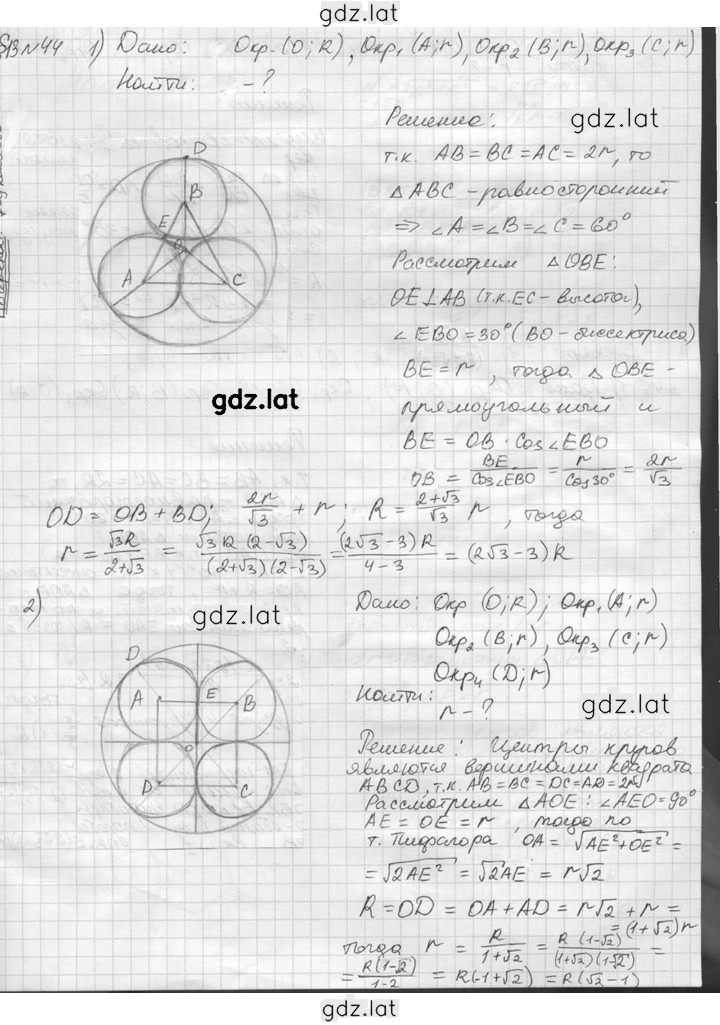 gdz.lat
§13 N44 1) Дано: Окр. (O; R), Окр₁ (A; r), Окр₂ (B; r), Окр₃ (C; r)
Найти: - ?
Решение:
gdz.lat
т.к. AB = BC = AC = 2r, то
△ABC - равносторонний
⇒ ∠A = ∠B = ∠C = 60°
Рассмотрим △OBE:
OE⊥AB (т.к. EC - высота),
∠EBO = 30° (BO - биссектриса)
BE = r, тогда △OBE -
прямоугольный и
BE = OB · Cos∠EBO
OB = BE/Cos∠EBO = r/Cos30° = 2r/√3
D
B
E
O
A
C
gdz.lat
OD = OB + BD; 2r/√3 + r; R = (2+√3)/√3 r, тогда
r = √3R/(2+√3) = √3R(2-√3)/((2+√3)(2-√3)) = (2√3-3)R/(4-3) = (2√3-3)R
2)
gdz.lat
Дано: Окр (O; R); Окр₁ (A; r)
Окр₂ (B; r), Окр₃ (C; r)
Окр₄ (D; r)
Найти:
r - ?
gdz.lat
D
A
E
B
O
D
C
Решение: Центры кругов
являются вершинами квадрата
ABCD, т.к. AB = BC = DC = AD = 2r
Рассмотрим △AOE: ∠AEO = 90°
AE = OE = r, тогда по
т. Пифагора OA = √(AE²+OE²) =
= √(2AE²) = √2AE = r√2
R = OD = OA + AD = r√2 + r =
= (1+√2)r
тогда r = R/(1+√2) = R(1-√2)/((1+√2)(1-√2)) =
= R(1-√2)/(1-2) = R(-1+√2) = R(√2-1)
gdz.lat